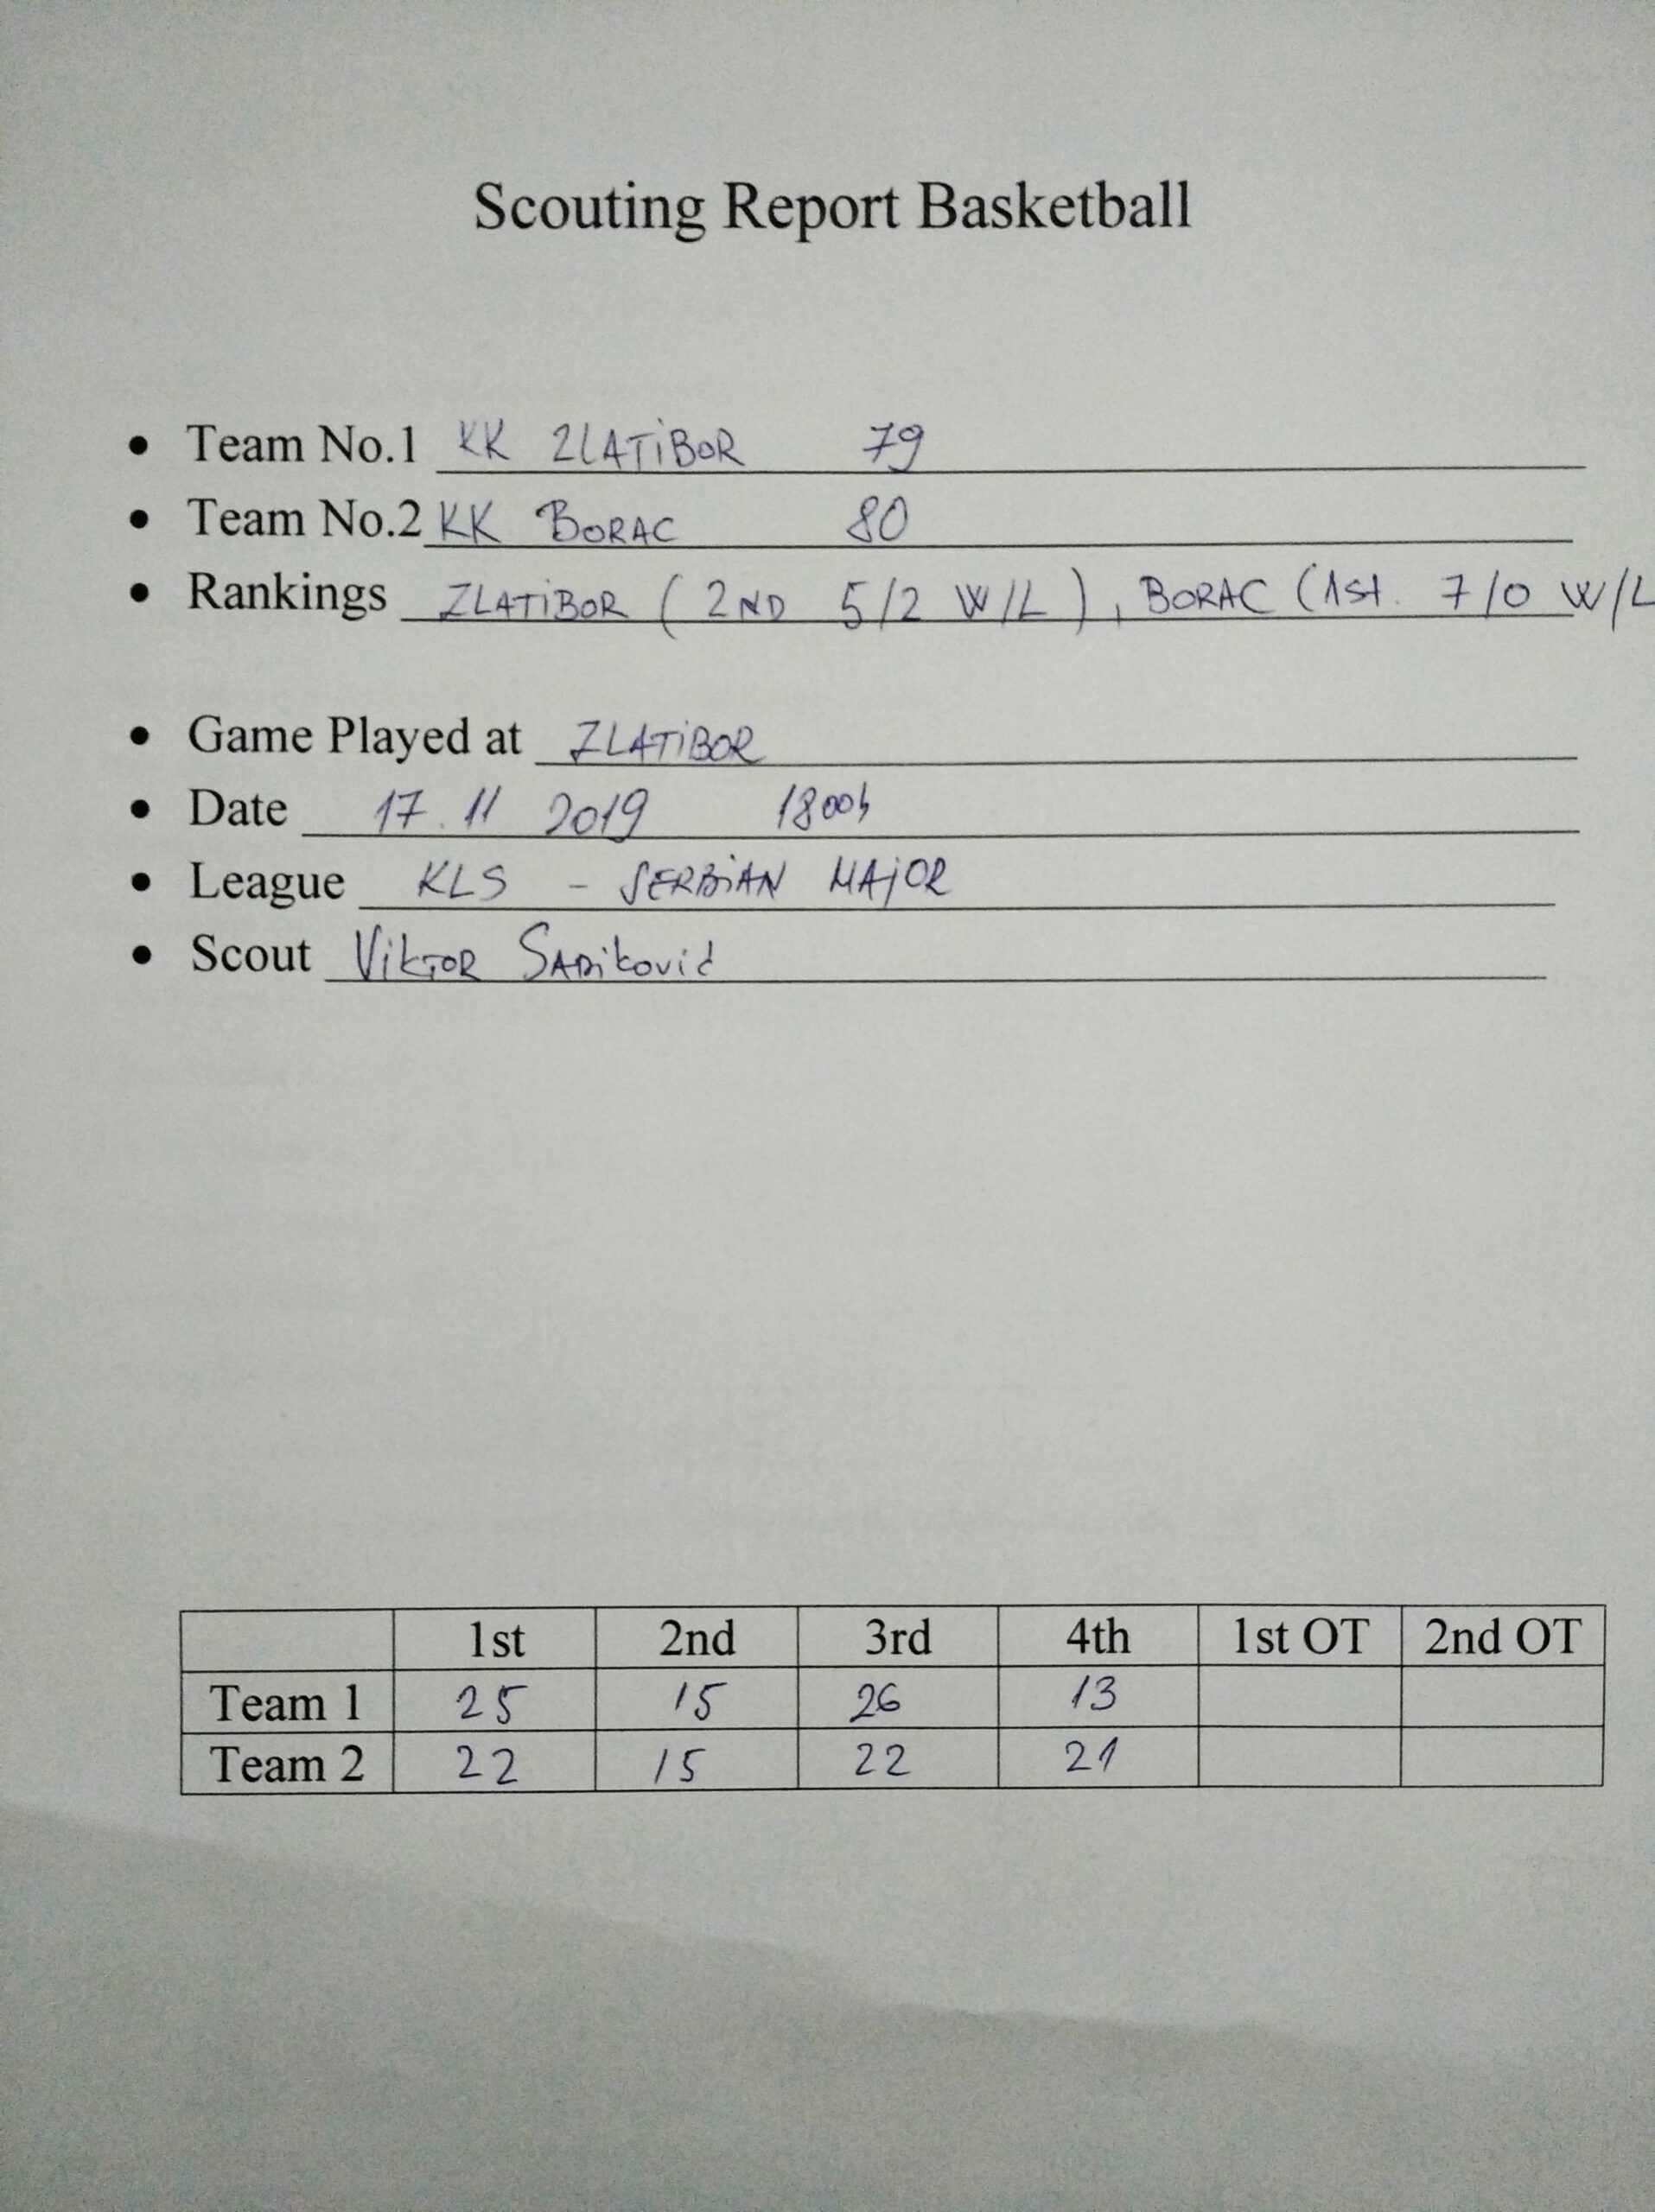 Scouting Report Basketball
• Team No.1 KK ZLATIBOR 79
• Team No.2 KK BORAC 80
• Rankings ZLATIBOR ( 2ND 5/2 W/L ) , BORAC (1st. 7/0 W/L
• Game Played at ZLATIBOR
• Date 17. 11 2019 18 00h
• League KLS - SERBIAN MAJOR
• Scout Viktor Sadiković
1st 2nd 3rd 4th 1st OT 2nd OT
Team 1 25 15 26 13
Team 2 22 15 22 21